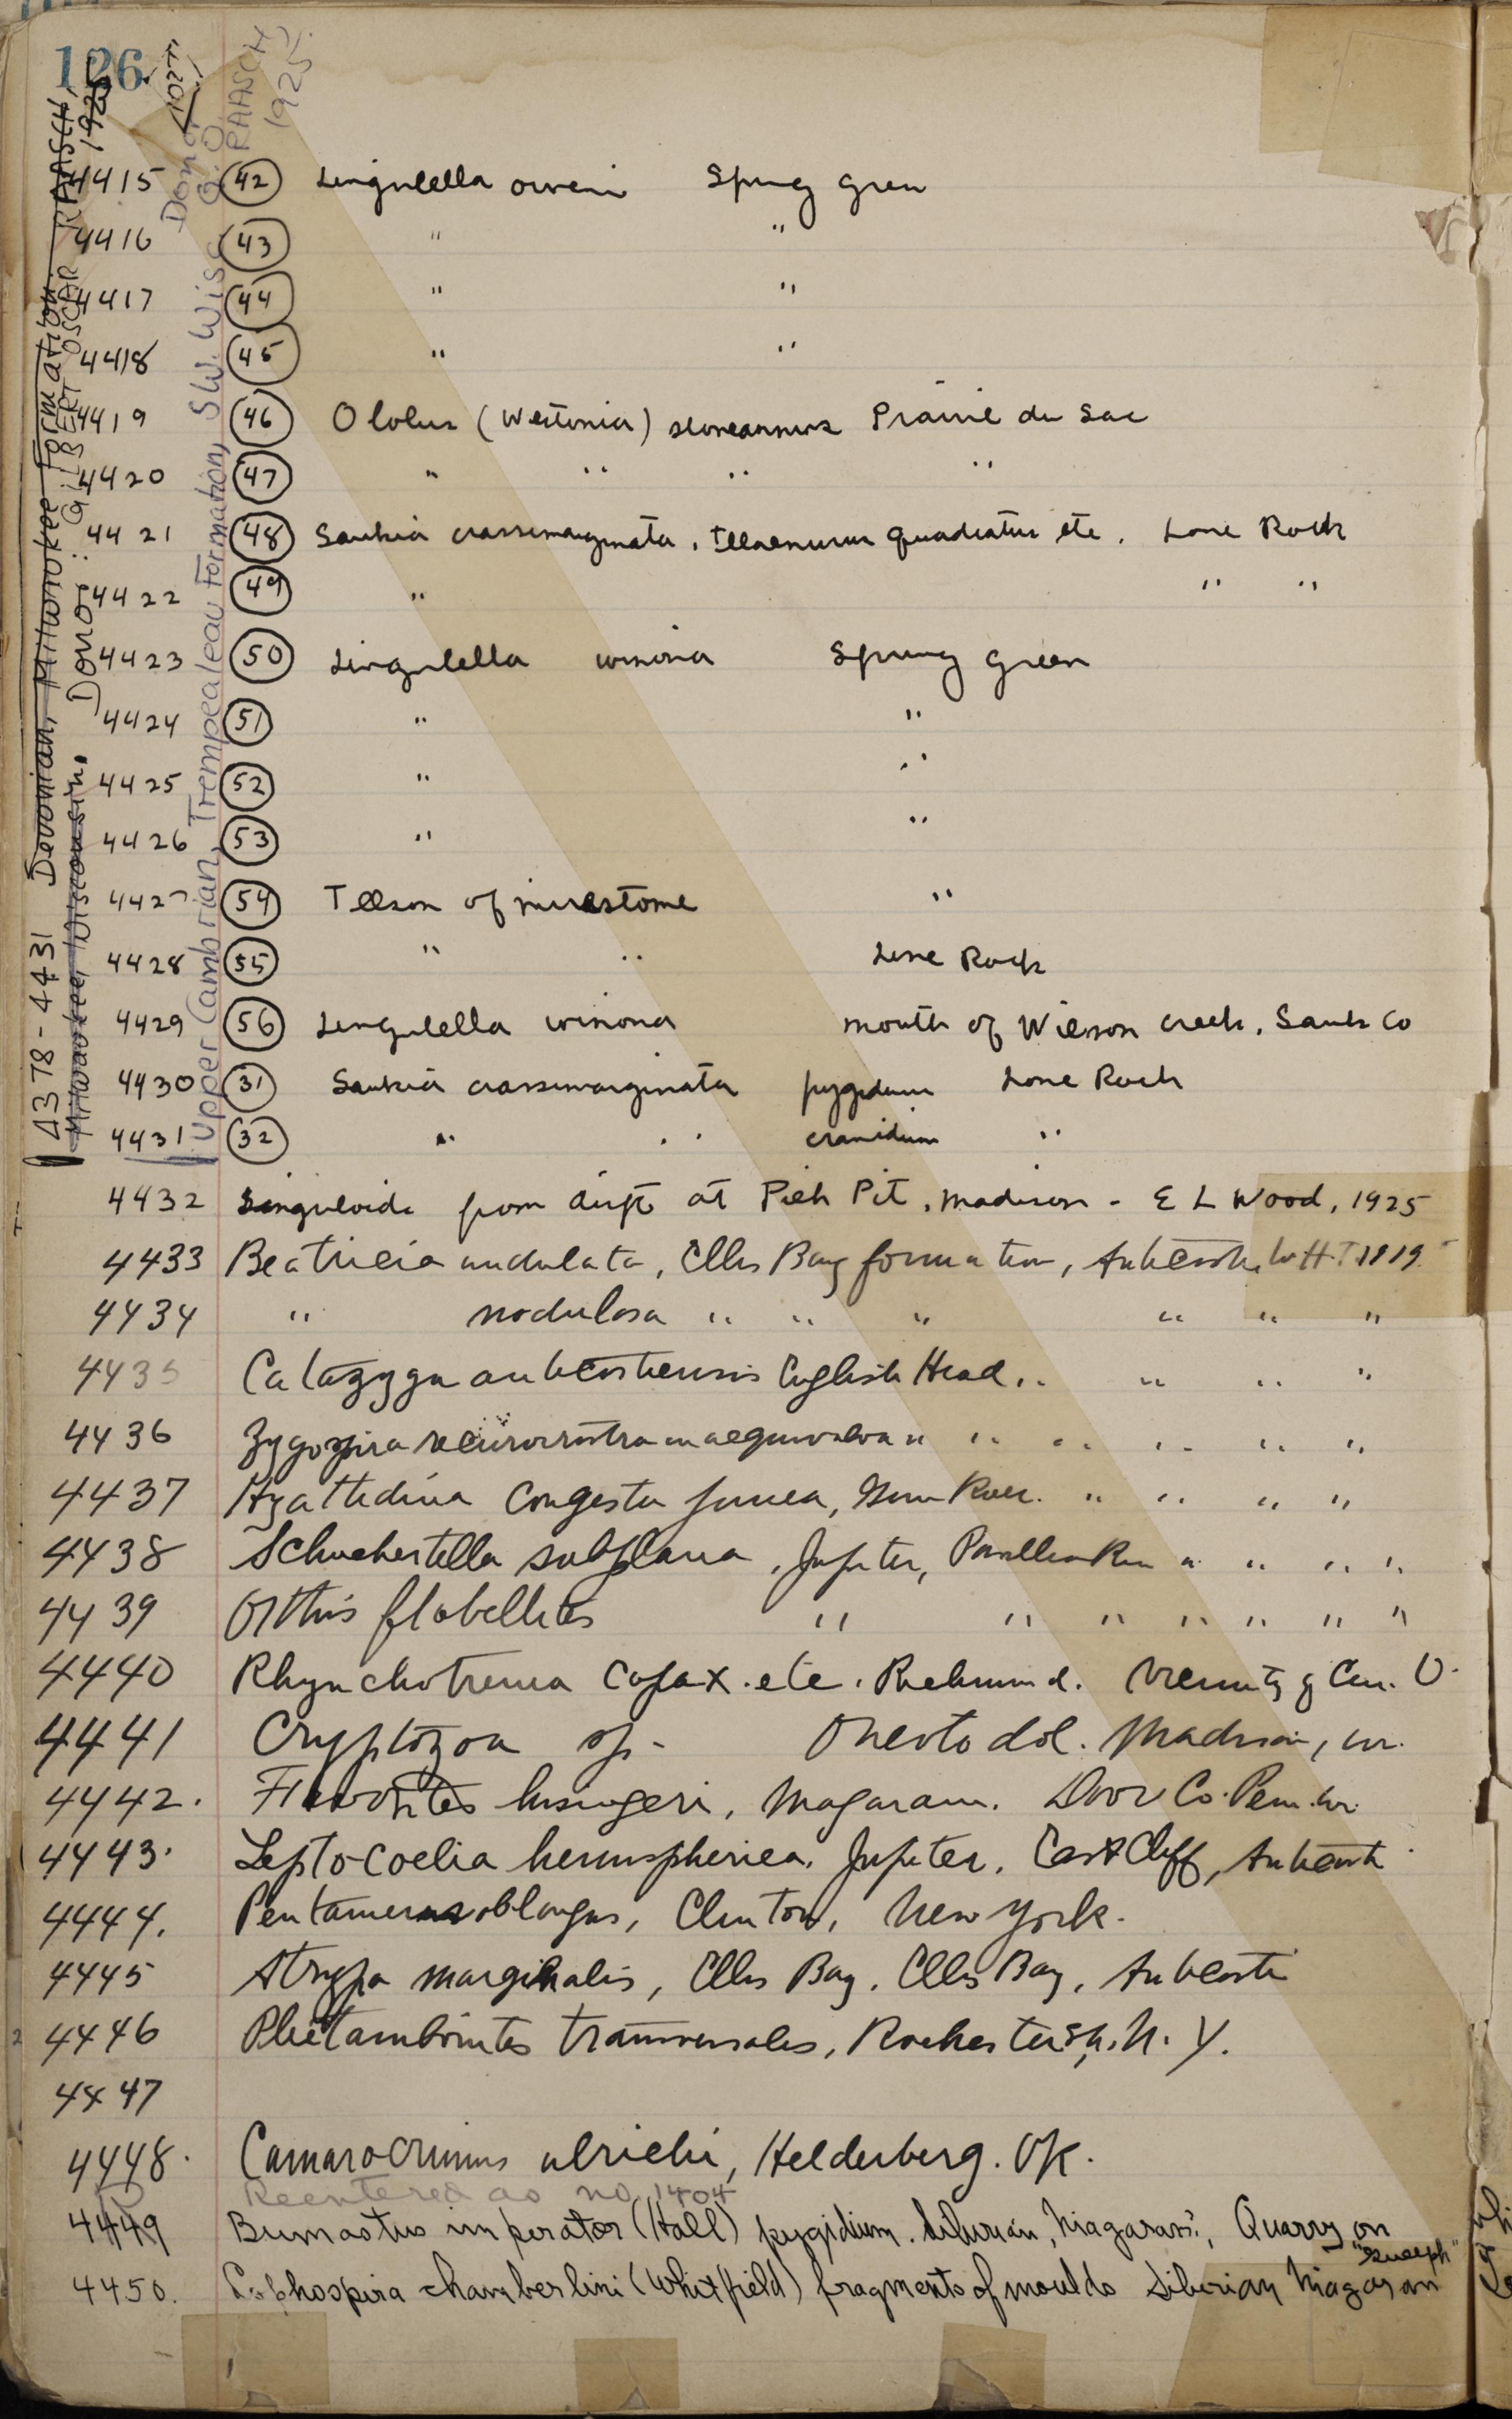 126
4378-4431 Devonian, Milwaukee Formation,
Milwaukee, Wisconsin. Donor: GILBERT OSCAR RAASCH, 1925
Upper Cambrian, Trempealeau Formation, SW. Wisc
Donor G.O. RAASCH, 1925.
4415 42 Lingulella oweni Spring Green
4416 43 " "
4417 44 " "
4418 45 " "
4419 46 Obolus (Westonia) stoneanus Prairie du Sac
4420 47 " " " "
4421 48 Saukia crassimarginata, Illaenurus quadratus etc. Lone Rock
4422 49 " " "
4423 50 Lingulella winona Spring Green
4424 51 " "
4425 52 " "
4426 53 " "
4427 54 Telson of "
4428 55 " " Lone Rock
4429 56 Lingulella winona mouth of Wilson Creek, Sauk Co
4430 31 Saukia crassimarginata pygidium Lone Rock
4431 32 " " cranidium "
4432 Linguloids from drift at Pieh Pit, Madison - E L Wood, 1925
4433 Beatricia undulata, Ellis Bay formation, Anticosti, W.H.T 1919
4434 " nodulosa " " " " " "
4435 Catazyga anticostiensis English Head " " " "
4436 Zygospira recurvirostra " " " " " "
4437 Hyattidina congesta junea, Gun River. " " " "
4438 Schuchertella subplana, Jupiter, " " " "
4439 Orthis flabellites " " " " " " "
4440 Rhynchotrema capax. etc. Richmond. Vicinity of Cin. O.
4441 Cryptozoa sp. Oneota dol. Madison, W.
4442. Favosites hisingeri, Niagaran. Door Co. Pen. W.
4443. Leptocoelia hemispherica, Jupiter, East Cliff, Anticosti
4444. Pentamerus oblongus, Clinton, New York.
4445 Atrypa marginalis, Ellis Bay. Ellis Bay, Anticosti
4446 Plectambonites transversalis, Rochester Sh. N. Y.
4447
4448. Camarocrinus ulrichi, Helderberg. Ok.
Reentered as no 1404
4449 Bumastus imperator (Hall) pygidium. Silurian, Niagaran, Quarry on
"Guelph"
4450. Lophospira chamberlini (Whitfield) fragments of moulds Silurian Niagaran